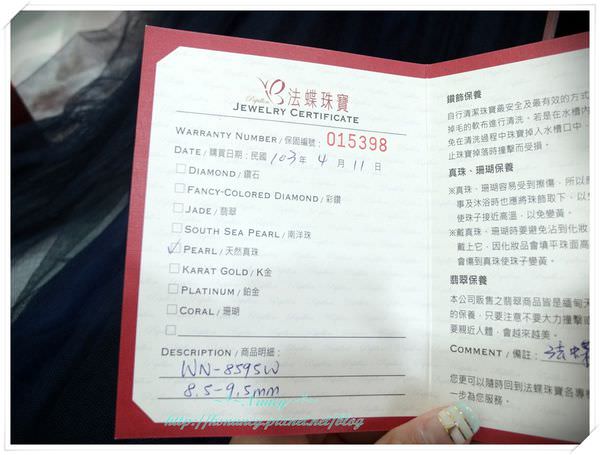 Papillon
法蝶珠寶
JEWELRY CERTIFICATE
WARRANTY NUMBER / 保固編號: 015398
DATE / 購買日期:民國 103 年 4 月 11 日
DIAMOND / 鑽石
FANCY-COLORED DIAMOND / 彩鑽
JADE / 翡翠
SOUTH SEA PEARL / 南洋珠
PEARL / 天然真珠
KARAT GOLD / K金
PLATINUM / 鉑金
CORAL / 珊瑚
DESCRIPTION / 商品明細:
WN-8595W
8.5-9.5mm
鑽飾保養
自行清潔珠寶最安全及最有效的方式
掉毛的軟布進行清洗。若是在水槽內
免在清洗過程中珠寶掉入水槽口中,
止珠寶掉落時撞擊而受損。
真珠、珊瑚保養
※真珠、珊瑚容易受到擦傷,所以
事及沐浴時也應將珠飾取下,以
使珠子接近高溫,以免變黃。
※戴真珠、珊瑚時要避免沾到化妝
戴上它,因化妝品會填平珠面高
會傷到真珠使珠子變黃。
翡翠保養
本公司販售之翡翠商品皆是緬甸天
的保養,只要注意不要大力撞擊或
要親近人體,會越來越美。
COMMENT / 備註: 法蝶
您更可以隨時回到法蝶珠寶各專櫃
一步為您服務。